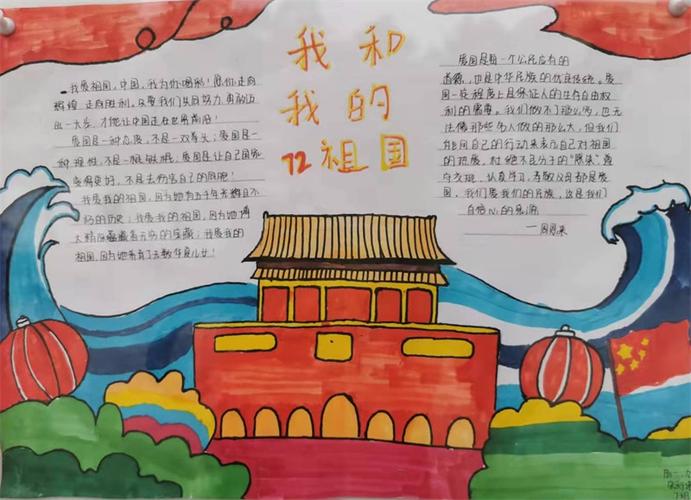 我和
我的
72祖国
我爱祖国,中国,我为你喝彩!愿你走向
辉煌,走向胜利。只要我们生日努力,勇敢迈
出一大步,才能让中国走在世界前沿!
爱国是一种态度,不是一双拳头;爱国是一
种理性,不是一腔敏感;爱国是让自己国家
变得更好,不是去伤害自己的同胞!
我爱我的祖国,因为她有五千年来
的历史;我爱我的祖国,因为她博
大精深蕴藏着无穷的宝藏;我爱我的
祖国,因为她养育了五数华夏儿女!
爱国是每一个公民应有的
道德,也是中华民族的优良传统。爱
国一定程度上是保证人的生存自由权
利的需要。我们做不了
法像那些伟人做的那么大,但我们
能向自己的行动来表示自己对祖国
的热爱,杜绝不
守交规,认真学习,孝敬父母都是爱
国,我们爱我们的民族,这是我们
自信心的泉源
—周恩来